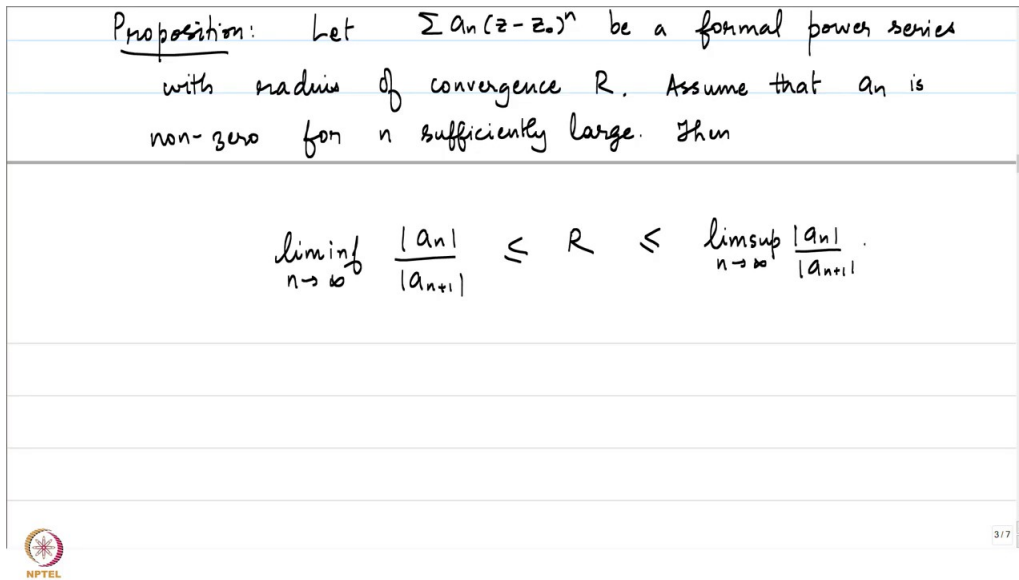 Proposition: Let Σ an (z - z₀)ⁿ be a formal power series
with radius of convergence R. Assume that an is
non-zero for n sufficiently large. Then
liminf n→∞ |an| / |an+1| ≤ R ≤ limsup n→∞ |an| / |an+1| .
3 / 7
NPTEL